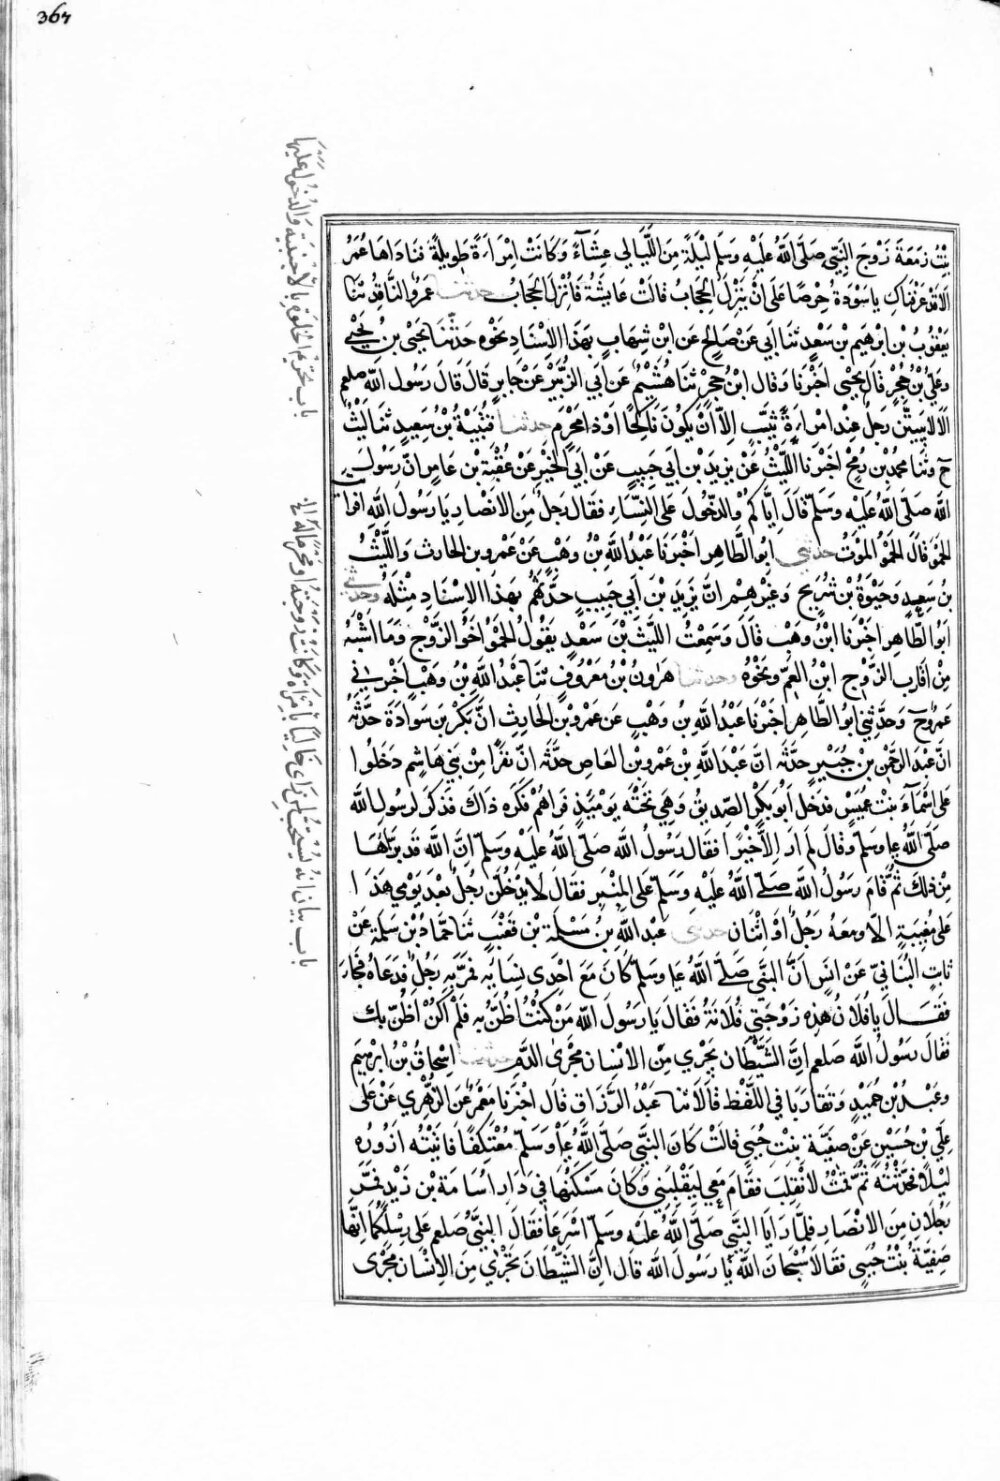 367
باب تحريم الخلوة بالاجنبية والدخول عليها
باب بيان انه يستحب لمن رأى خاليا بامرأة وكانت زوجته او محرما له ان
بِنْتُ زَمْعَةَ زَوْجَ النَّبِيِّ صَلَّى اللّٰهُ عَلَيْهِ وَسَلَّمَ لَيْلَةً مِنَ اللَّيَالِي عِشَاءً وَكَانَتْ امْرَاَةً طَوِيلَةً فَنَادَاهَا عُمَرُ
اَلَا قَدْ عَرَفْنَاكِ يا سَوْدَةُ حِرْصًا عَلَى اَنْ يَنْزِلَ الْحِجَابُ قَالَتْ عَايِشَةُ فَاَنْزَلَ الْحِجَابَ حدثنا عمرٌو النَّاقِدُ ثنا
يَعْقُوبُ بْنُ اِبْرَهِيمَ بْنِ سَعْدٍ ثنا اَبِي عَنْ صَالِحٍ عَنِ ابْنِ شِهَابٍ بِهَذَا الْاِسْنَادِ نَحْوَهُ حَدَّثَنَا يَحْيَى بْنُ يَحْيَى
وعَلِيُّ بْنُ حُجْرٍ قال يَحْيَى اَخْبَرَنَا وَقَالَ ابْنُ حُجْرٍ ثنا هُشَيْمٌ عَنْ اَبِي الزُّبَيْرِ عَنْ جَابِرٍ قَالَ قَالَ رَسُولُ اللّٰهِ صلعم
اَلَا لَا يَبِيتَنَّ رَجُلٌ عِنْدَ امْرَاَةٍ ثَيِّبٍ اِلَّا اَنْ يَكُونَ نَاكِحًا اَوْ ذَا مَحْرَمٍ حدثنا قُتَيْبَةُ بْنُ سَعِيدٍ ثنا لَيْثٌ
ح وثنا محمدُ بْنُ رُمْحٍ اخبرنا اللَّيْثُ عَنْ يَزِيدَ بْنِ اَبِي حَبِيبٍ عَنْ اَبِي الْخَيْرِ عَنْ عُقْبَةَ بْنِ عَامِرٍ اَنَّ رَسُولَ
اللّٰهِ صَلَّى اللّٰهُ عَلَيْهِ وَسَلَّمَ قَالَ اِيَّاكُمْ وَالدُّخُولَ عَلَى النِّسَاءِ فَقَالَ رَجُلٌ مِنَ الْاَنْصَارِ يَا رَسُولَ اللّٰهِ اَفَرَاَ
الْحَمْوَ قَالَ الْحَمْوُ الْمَوْتُ حدثني ابُو الطَّاهِرِ اَخْبَرَنَا عَبْدُ اللّٰهِ بْنُ وَهْبٍ عَنْ عَمْرِو بْنِ الحَارِثِ وَاللَّيْثِ
بْنِ سَعِيدٍ وَحَيْوَةَ بْنِ شُرَيْحٍ وَغَيْرِهِمْ اَنَّ يَزِيدَ بْنَ اَبِي حَبِيبٍ حَدَّثَهُمْ بِهَذَا الْاِسْنَادِ مِثْلَهُ وحدثني
اَبُو الطَّاهِرِ اخبرنا ابْنُ وَهْبٍ قَالَ وَسَمِعْتُ اللَّيْثَ بْنَ سَعْدٍ يَقُولُ الْحَمْوُ اَخُو الزَّوْجِ وَمَا اشْبَهَهُ
مِنْ اَقَارِبِ الزَّوْجِ ابْنُ الْعَمِّ وَنَحْوُهُ وحدثنا هَرُونُ بْنُ مَعْرُوفٍ ثنا عَبْدُ اللّٰهِ بْنُ وَهْبٍ اَخْبَرَنِي
عَمْرٌو ح وَحَدَّثَنِي ابُو الطَّاهِرِ اخبرنا عَبْدُ اللّٰهِ بْنُ وَهْبٍ عَنْ عَمْرِو بْنِ الحَارِثِ اَنَّ بَكْرَ بْنَ سَوَادَةَ حَدَّثَهُ
اَنَّ عَبْدَ الرَّحْمَنِ بْنَ جُبَيْرٍ حَدَّثَهُ اَنَّ عَبْدَ اللّٰهِ بْنَ عَمْرِو بْنِ الْعَاصِ حَدَّثَهُ اَنَّ نَفَرًا مِنْ بَنِي هَاشِمٍ دَخَلُوا
عَلَى اَسْمَاءَ بِنْتِ عُمَيْسٍ فَدَخَلَ اَبُو بَكْرٍ الصِّدِيقُ وَهِيَ تَحْتَهُ يَوْمَيِذٍ فَرَاهُمْ فَكَرِهَ ذَاكَ فَذَكَرَ لِرَسُولِ اللّٰهِ
صَلَّى اللّٰهُ ع وسَلَّمَ وَقَالَ لَمْ اَرَ اِلَّا خَيْرًا فَقَالَ رَسُولُ اللّٰهِ صَلَّى اللّٰهُ عَلَيْهِ وَسَلَّمَ اِنَّ اللّٰهَ قَدْ بَرَّاَهَا
مِنْ ذَلِكَ ثُمَّ قَامَ رَسُولُ اللّٰهِ صَلَّى اللّٰهُ عَلَيْهِ وَسَلَّمَ عَلَى الْمِنْبَرِ فَقَالَ لَا يَدْخُلَنَّ رَجُلٌ بَعْدَ يَوْمِي هَذَا
عَلَى مُغِيبَةٍ اِلَّا وَمَعَهُ رَجُلٌ اَوْ اثْنَانِ حدثنا عبدُ اللّٰهِ بْنُ مَسْلَمَةَ بْنِ قَعْنَبٍ ثنا حَمَّادُ بْنُ سَلَمَةَ عَنْ
ثابتٍ الْبُنَانِيِّ عَنْ اَنَسٍ اَنَّ النَّبِيَّ صَلَّى اللّٰهُ ع وسَلَّمَ كَانَ مَعَ اِحْدَى نِسَايِهِ فَمَرَّ بِهِ رَجُلٌ فَدَعَاهُ فَجَاءَ
فَقَالَ يا فُلَانُ هَذِهِ زَوْجَتِي فُلَانَةُ فَقَالَ يَا رَسُولَ اللّٰهِ مَنْ كُنْتُ اَظُنُّ بِهِ فَلَمْ اَكُنْ اَظُنُّ بِكَ
فَقَالَ رَسُولُ اللّٰهِ صلعم اِنَّ الشَّيْطَانَ يَجْرِي مِنَ الْاِنْسَانِ مَجْرَى الدَّمِ حدثنا اِسْحَاقُ بْنُ اِبْرَهِيمَ
وعَبْدُ بْنُ حُمَيْدٍ وَتَقَارَبَا فِي اللَّفْظِ قَالَا ثنا عَبْدُ الرَّزَّاقِ قَالَ اَخْبَرَنَا مَعْمَرٌ عَنِ الزُّهْرِيِّ عَنْ عَلِيِّ
عَلِيِّ بْنِ حُسَيْنٍ عَنْ صَفِيَّةَ بِنْتِ حُيَيٍّ قَالَتْ كَانَ النَّبِيُّ صَلَّى اللّٰهُ ع وَسَلَّمَ مُعْتَكِفًا فَاَتَيْتُهُ اَزُورُهُ
لَيْلًا فَحَدَّثْتُهُ ثُمَّ قُمْتُ لِاَنْقَلِبَ فَقَامَ مَعِي لِيَقْلِبَنِي وَكَانَ مَسْكَنُهَا فِي دَارِ اُسَامَةَ بْنِ زَيْدٍ فَمَرَّ
رَجُلَانِ مِنَ الْاَنْصَارِ فَلَمَّا رَاَيَا النَّبِيَّ صَلَّى اللّٰهُ عَلَيْهِ وَسَلَّمَ اَسْرَعَا فَقَالَ النَّبِيُّ صلعم عَلَى رِسْلِكُمَا اِنَّهَا
صَفِيَّةُ بِنْتُ حُيَيٍّ فَقَالَا سُبْحَانَ اللّٰهِ يَا رَسُولَ اللّٰهِ قَالَ اِنَّ الشَّيْطَانَ يَجْرِي مِنَ الْاِنْسَانِ مَجْرَى